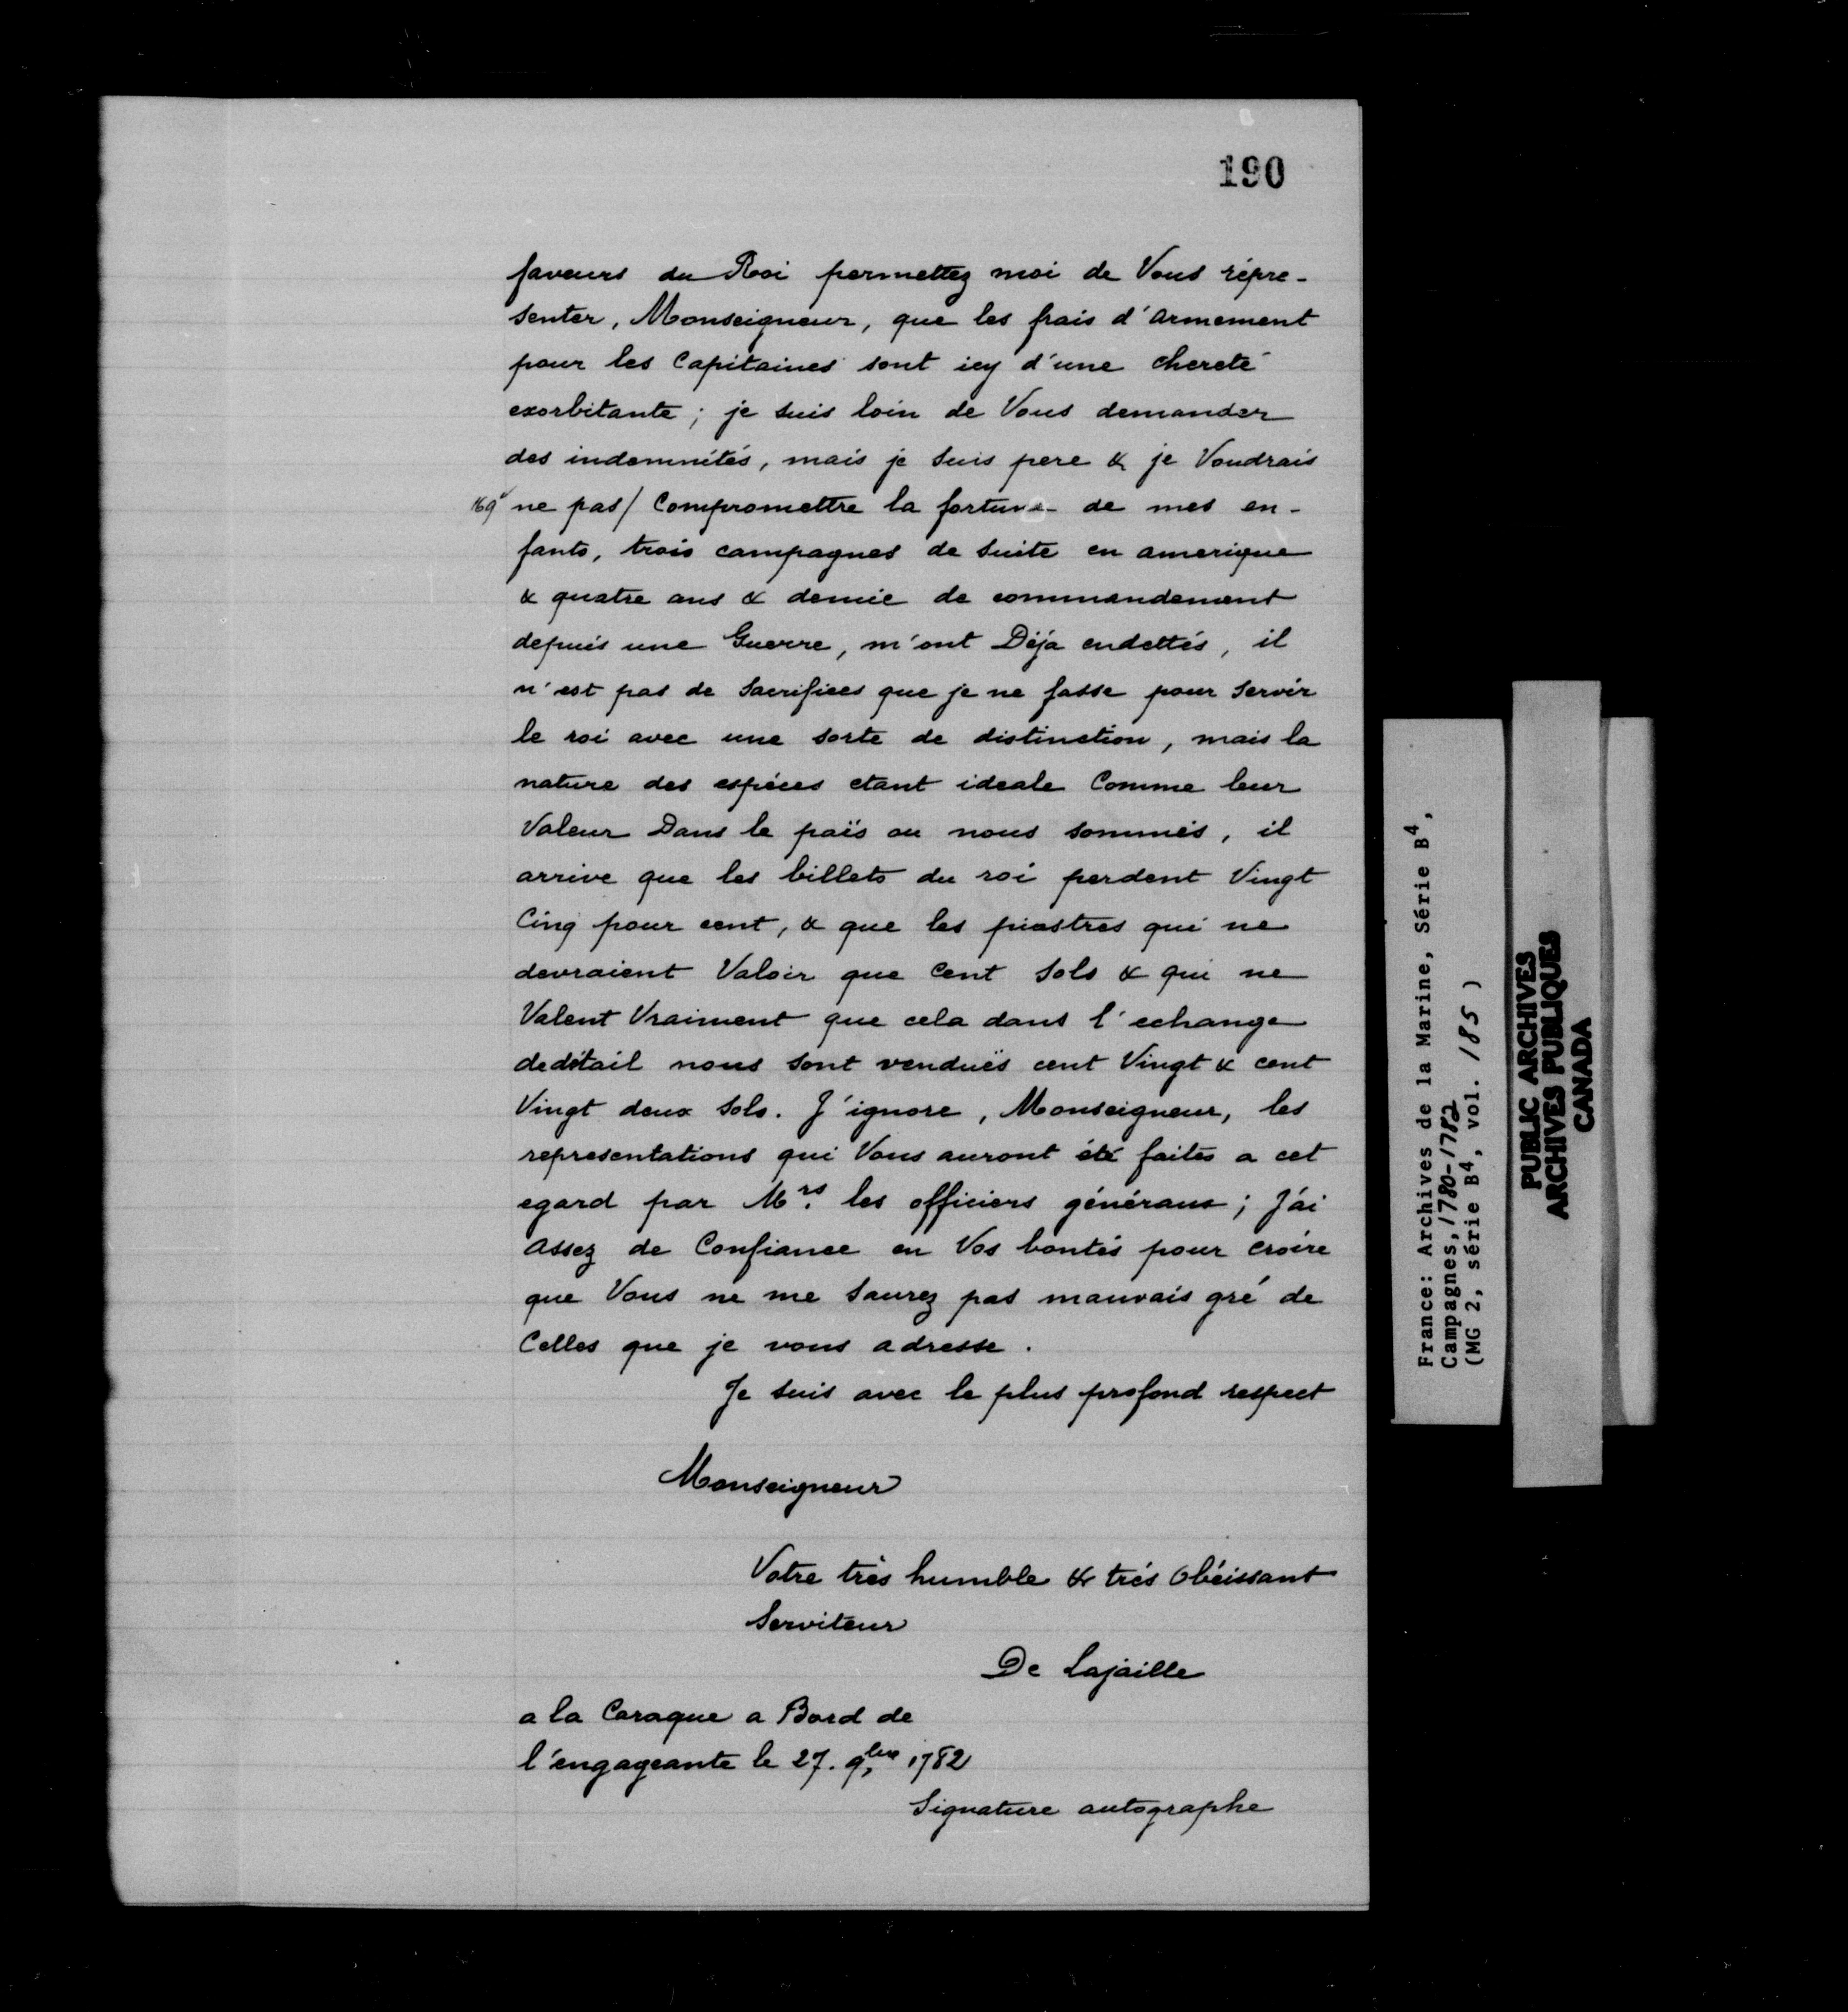 190
faveurs du Roi permettez moi de Vous répre-
senter, Monseigneur, que les frais d'armement
pour les Capitaines sont icy d'une chereté
exorbitante; je suis loin de Vous demander
des indemnités, mais je suis pere & je Voudrais
169v ne pas/ Compromettre la fortune de mes en-
fants, trois campagnes de suite en amerique
& quatre ans & demie de commandement
depuis une Guerre, m'ont Déja endettés, il
n'est pas de Sacrifices que je ne fasse pour Servir
le roi avec une sorte de distinction, mais la
nature des espéces etant ideale Comme leur
Valeur Dans le païs ou nous sommes, il
arrive que les billets du roi perdent Vingt
Cinq pour cent, & que les piastres qui ne
devraient Valoir que Cent Sols & qui ne
Valent Vraiment que cela dans l'echange
dedétail nous sont venduës cent Vingt & cent
Vingt deux Sols. J'ignore, Monseigneur, les
representations qui Vous auront été faites a cet
egard par Mrs. les officiers généraux; J'ai
assez de Confiance en Vos bontés pour croire
que Vous ne me Saurez pas mauvais gré de
Celles que je vous adresse.
Je suis avec le plus profond respect
Monseigneur
Votre très humble & trés Obéissant
Serviteur
De Lajaille
a la Caraque a Bord de
l'engageante le 27. 9bre 1782
Signature autographe
France: Archives de la Marine, Série B4,
Campagnes, 1780-1782
(MG 2, série B4, vol. 185)
PUBLIC ARCHIVES
ARCHIVES PUBLIQUES
CANADA